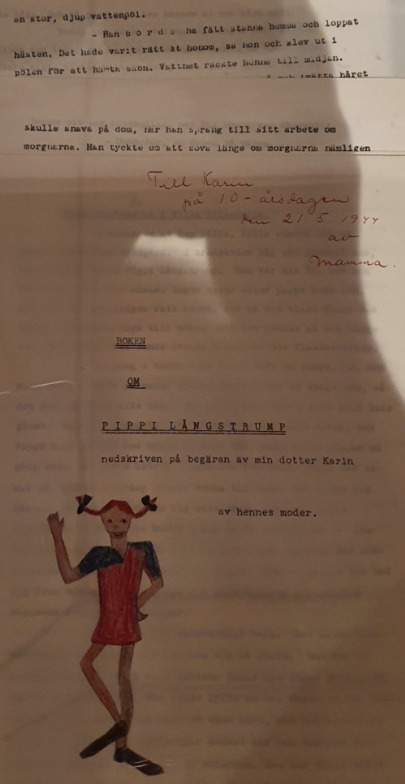 en stor, djup vattenpöl.
- Han b o r d e ha fått stanna hemma och loppat
hästen. Det hade varit rätt åt honom, sa hon och klev ut i
pölen för att hämta skon. Vattnet räckte henne till midjan.
håret
skulle snava på dom, när han sprang till sitt arbete om
morgnarna. Han tyckte om att sova länge om morgnarna nämligen
Till Karin
på 10-årsdagen
den 21/5 1944
av
Mamma.
BOKEN
OM
P I P P I L Å N G S T R U M P
nedskriven på begäran av min dotter Karin
av hennes moder.